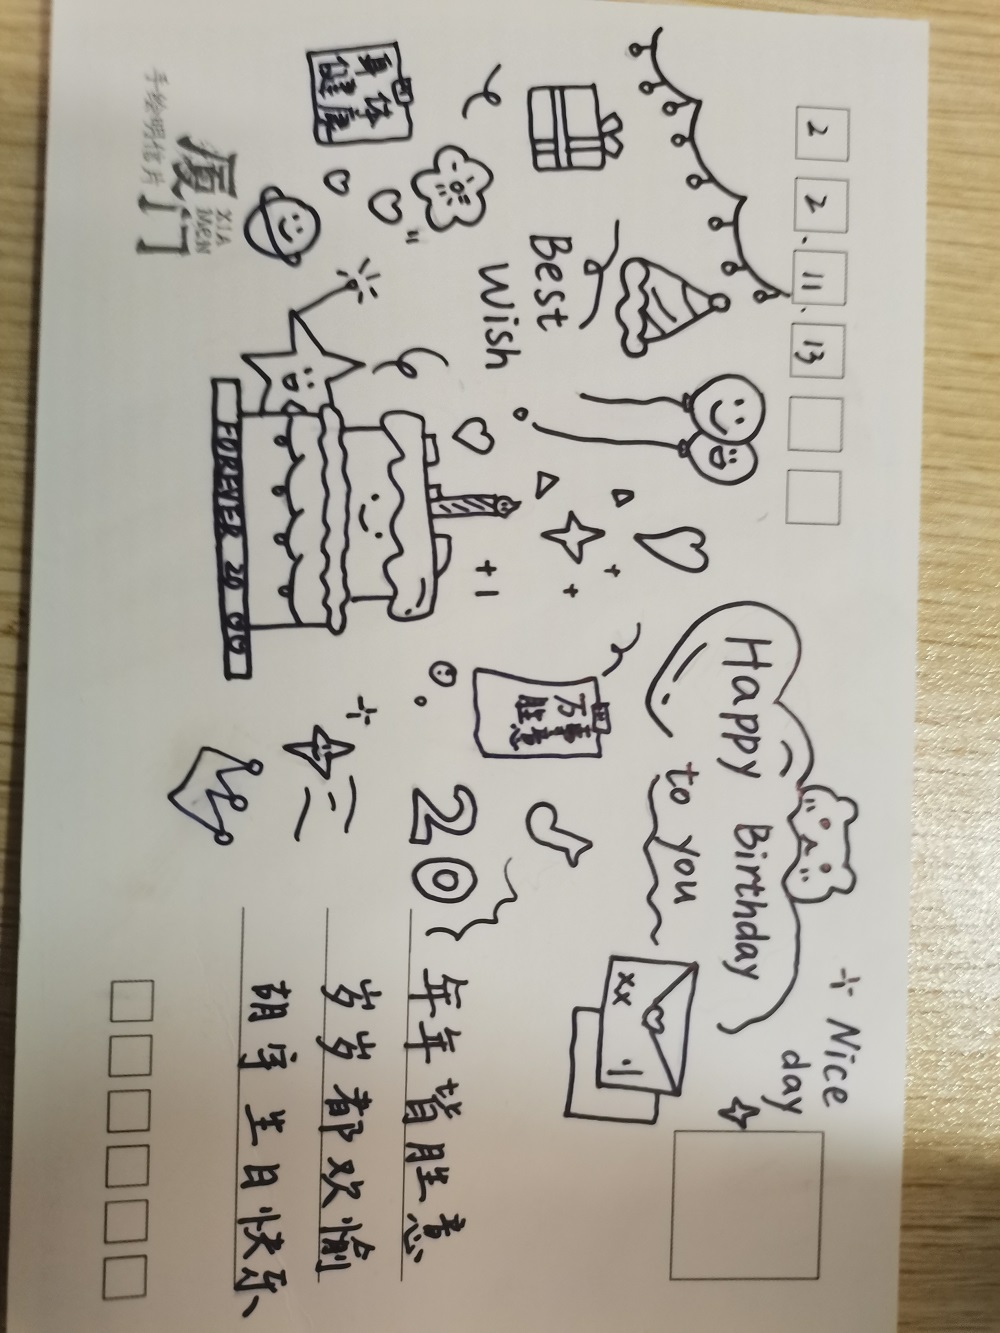 2 2. 11. 13
Nice
day
Happy Birthday
to you
Best
Wish
万事
胜意
xx
身体
健康
+1
20
年年皆胜意
岁岁都欢愉
胡宇生日快乐、
FOREVER 20
厦门
XIA
MEN
手绘明信片